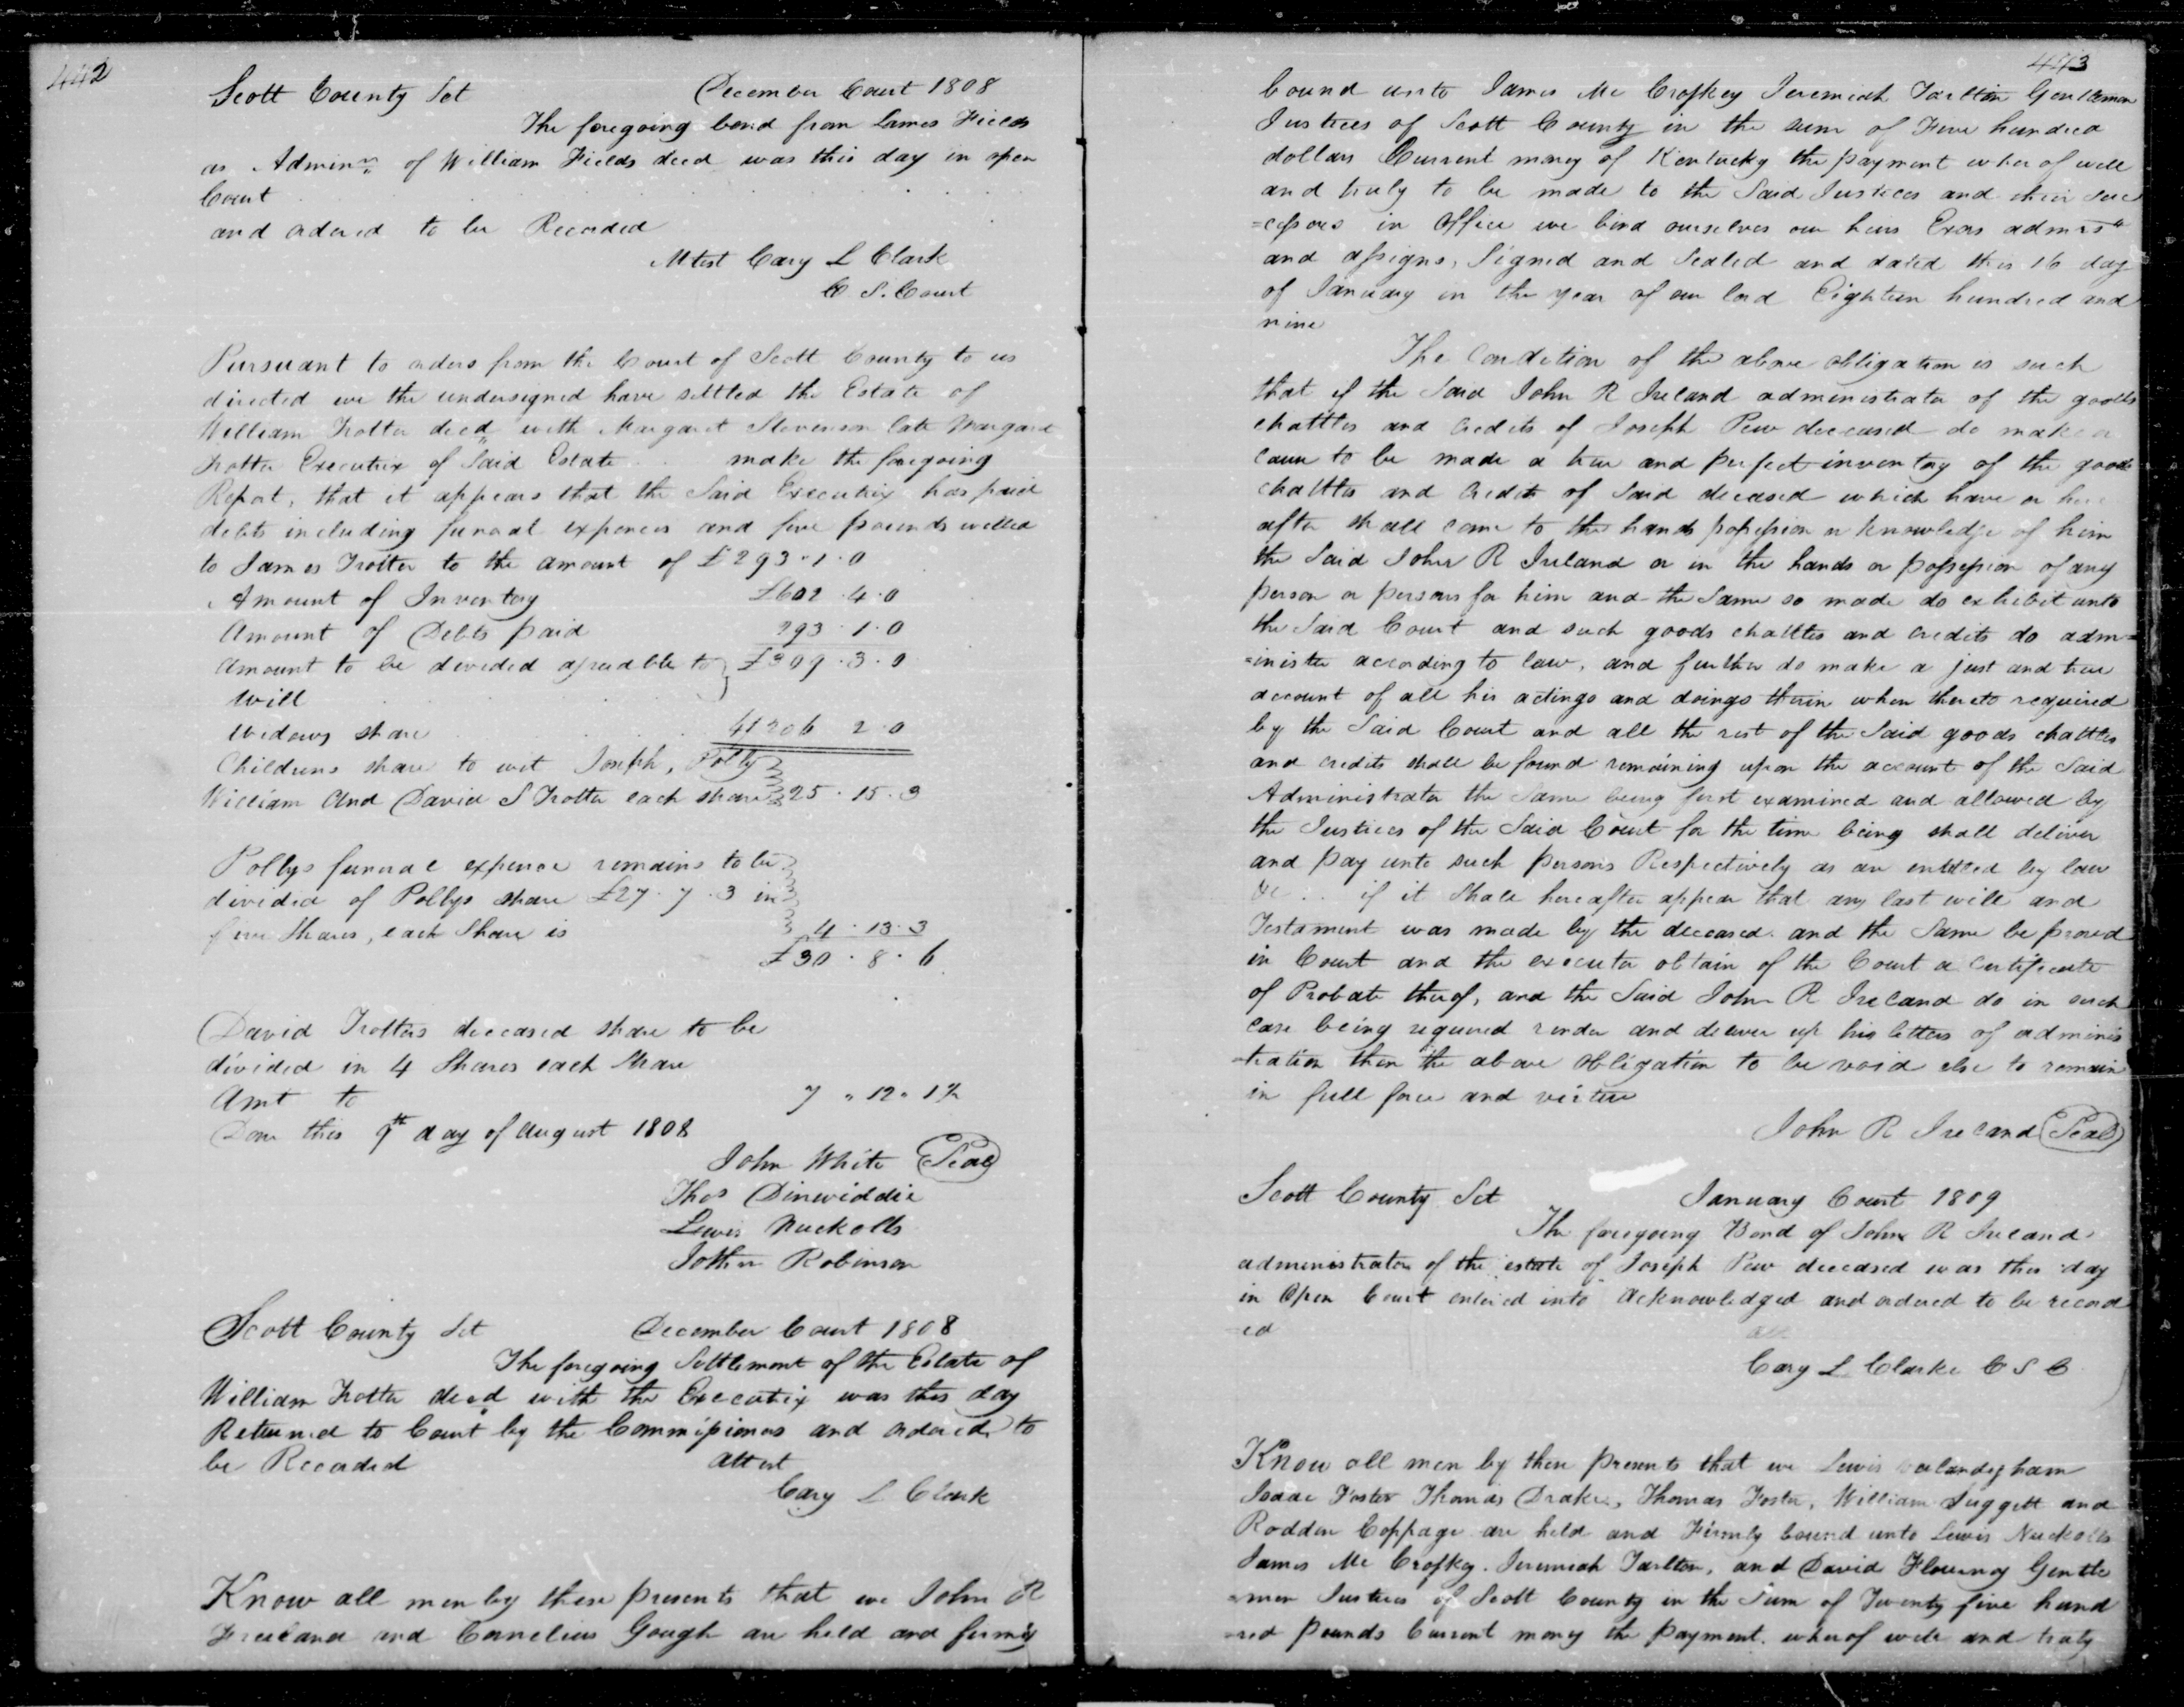 442
Scott County Sct December Court 1808
The foregoing bond from James Fields
as Adminr of William Fields decd was this day in open
Court
and ordered to be Recorded
Attest Cary L Clark
C S. Court
Pursuant to orders from the Court of Scott County to us
directed we the undersigned have settled the Estate of
William Trotter decd with Margaret Stevenson late Margaret
Trotter Executrix of Said Estate make the foregoing
Report, that it appears that the Said Executrix has paid
debts including funeral expences and five pounds willed
to James Trotter to the amount of £293·1·0
Amount of Inventory £602·4·0
Amount of Debts paid 293·1·0
Amount to be devided agreeable to } £309·3·0
Will
Widows share 206 2·0
Childrens share to wit Joseph, Polly
William And David S Trotter each share 25·15·3
Pollys funeral expence remains to be
divided of Pollys share £27·7·3 in
five Shares, each Share is 4·13·3
£30·8·6
David Trotters deceased share to be
divided in 4 Shares each share
Amt to 7 " 12 " 1½
Done this 9th day of August 1808
John White (Seal)
Thos Dinwiddie
Lewis Nuckolls
John Robinson
Scott County Sct December Court 1808
The foregoing Settlement of the Estate of
William Trotter decd with the Executrix was this day
Returned to Court by the Commissioners and ordered to
be Recorded Attest
Cary L Clark
Know all men by these presents that we John R
Ireland and Cornelius Gough are held and firmly
443
bound unto James Mc Croskey Jeremiah Tarlton Gentlemen
Justices of Scott County in the sum of Five hundred
dollars Current money of Kentucky the payment wherof well
and truly to be made to the Said Justices and their suc
=cessors in Office we bind ourselves our heirs Exors admrs
and assigns, Signed and Sealed and dated this 16 day
of January in the year of our lord Eighteen hundred and
nine
The Condition of the above obligation is such
that if the Said John R Ireland administrator of the goods
chattles and Credits of Joseph Pew deceased do make or
cause to be made a true and perfect inventory of the goods
chattles and credits of Said deceased which have or here
after shall come to the hands possession or knowledge of him
the Said John R Ireland or in the hands or possession of any
person or persons for him and the Same so made do exhibit unto
the Said Court and such goods chattles and credits do adm=
=inister according to law, and further do make a just and true
account of all his actings and doings therin when thereto required
by the Said Court and all the rest of the Said goods chattles
and credits shall be found remaining upon the account of the Said
Administrator the Same being first examined and allowed by
the Justices of the Said Court for the time being shall deliver
and pay unto such persons Respectively as are entitled by law
&c .. if it Shall hereafter appear that any last will and
Testament was made by the deceased. and the Same be proved
in Court and the executor obtain of the Court a Certificate
of Probate therof, and the Said John R Ireland do in such
case being required render and deliver up his letters of adminis
=tration then the above Obligation to be void else to remain
in full force and virtue
John R Ireland (Seal)
Scott County Sct January Court 1809
The foregoing Bond of John R Ireland
administrator of the estate of Joseph Pew deceased was this day
in Open Court entered into Acknowledged and ordered to be record
=ed
Cary L Clarke C S C
Know all men by these presents that we Lewis Valandigham
Isaac Foster Thomas Drake, Thomas Foster, William Suggett and
Rodden Coppage are held and Firmly bound unto Lewis Nuckolls
James Mc Croskey. Jeremiah Tarlton, and David Flournoy Gentle
=men Justices of Scott County in the Sum of Twenty five hund
=red pounds Current money the payment. wherof well and truly